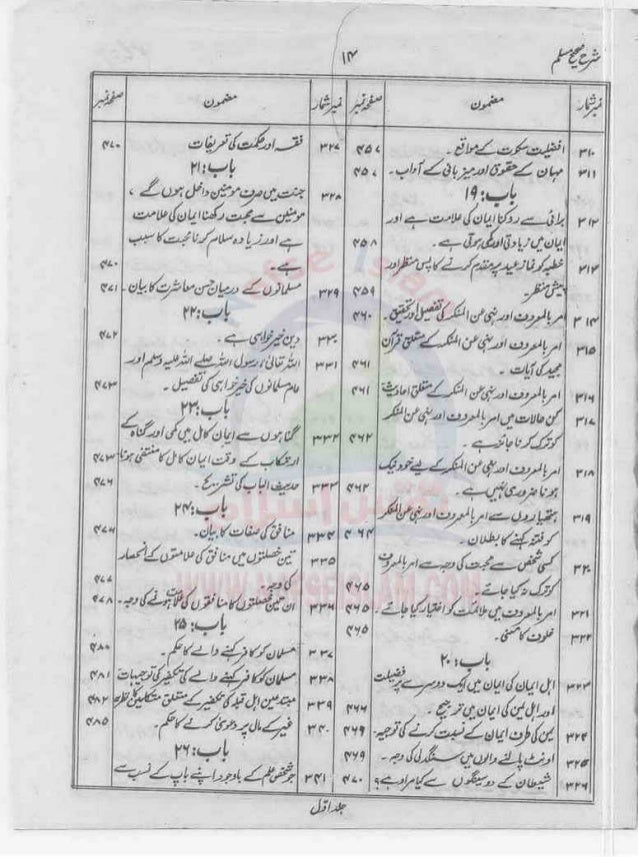 شرح صحیح مسلم
۱۴
نمبرشمار مضمون صفحہ نمبر
۳۱۰ افضلیت سکوت کے مواقع۔ ۴۵۷
۳۱۱ مہمان کے حقوق اور میزبانی کے آداب۔ ۴۵۷
باب: ۱۹
۳۱۲ برائی سے روکنا ایمان کی علامت ہے اور
ایمان میں زیادتی اور کمی ہوتی ہے۔ ۴۵۸
۳۱۳ خطبہ کو نماز عید پر مقدم کرنے کا پس منظر اور
پیش منظر۔ ۴۵۹
۳۱۴ امر بالمعروف اور نہی عن المنکر کی تفصیل اور تحقیق۔ ۴۶۰
۳۱۵ امر بالمعروف اور نہی عن المنکر کے متعلق قرآن
مجید کی آیات۔ ۴۶۱
۳۱۶ امر بالمعروف اور نہی عن المنکر کے متعلق احادیث ۴۶۱
۳۱۷ کن حالات میں امر بالمعروف اور نہی عن المنکر
کو ترک کرنا جائز ہے۔ ۴۶۲
۳۱۸ امر بالمعروف اور نہی عن المنکر کے لیے خود نیک
ہونا ضروری نہیں ہے۔ ۴۶۲
۳۱۹ ہتھیاروں سے امر بالمعروف اور نہی عن المنکر
کو فتنہ کہنے کا بطلان۔ ۴۶۴
۳۲۰ کسی شخص سے محبت کی وجہ سے امر بالمعروف
کو ترک نہ کیا جائے۔ ۴۶۵
۳۲۱ امر بالمعروف میں ملائمت کو اختیار کیا جائے۔ ۴۶۵
۳۲۲ خلوف کا معنی۔ ۴۶۵
باب: ۲۰
۳۲۳ اہل ایمان کی ایمان میں ایک دوسرے پر فضیلت
اور اہل یمن کی ایمان میں ترجیح۔ ۴۶۶
۳۲۴ یمن کی طرف ایمان کے نسبت کرنے کی توجیہ۔ ۴۶۹
۳۲۵ اونٹ پالنے والوں میں سنگدلی کی وجہ۔ ۴۶۹
۳۲۶ شیطان کے دو سینگوں سے کیا مراد ہے؟ ۴۷۰
نمبرشمار مضمون صفحہ نمبر
۳۲۷ فقہ اور حکمت کی تعریفات ۴۷۰
باب: ۲۱
۳۲۸ جنت میں صرف مومنین داخل ہوں گے،
مومنین سے محبت رکھنا ایمان کی علامت
ہے اور زیادہ سلام کرنا محبت کا سبب
ہے۔ ۴۷۰
۳۲۹ مسلمانوں کے درمیان حسن معاشرت کا بیان۔ ۴۷۱
باب: ۲۲
۳۳۰ دین خیرخواہی ہے۔ ۴۷۲
۳۳۱ اللہ تعالیٰ، رسول اللہ صلے اللہ علیہ وسلم اور
عام مسلمانوں کی خیرخواہی کی تفصیل۔ ۴۷۳
باب: ۲۳
۳۳۲ گناہوں سے ایمان کامل میں کمی اور گناہ کے
ارتکاب کے وقت ایمان کامل کا منتفی ہونا ۴۷۳
۳۳۳ حدیث الباب کی تشریح۔ ۴۷۶
باب: ۲۴
۳۳۴ منافق کی صفات کا بیان۔ ۴۷۶
۳۳۵ تین خصلتوں میں منافق کی علامتوں کے انحصار
کی وجہ۔ ۴۷۷
۳۳۶ ان تین خصلتوں کا منافقوں کی علامت ہونے کی وجہ۔ ۴۷۸
باب: ۲۵
۳۳۷ مسلمان کو کافر کہنے والے کا حکم۔ ۴۸۰
۳۳۸ مسلمان کو کافر کہنے والے کی تکفیر کی توجیہات ۴۸۱
۳۳۹ مبتدعین اہل قبلہ کی تکفیر کے متعلق متکلمین کا نظریہ ۴۸۲
۳۴۰ غیر کے مال پر دعویٰ کرنے کا حکم۔ ۴۸۵
باب: ۲۶
۳۴۱ جو شخص علم کے باوجود اپنے باپ کے نسب سے
جلد اول